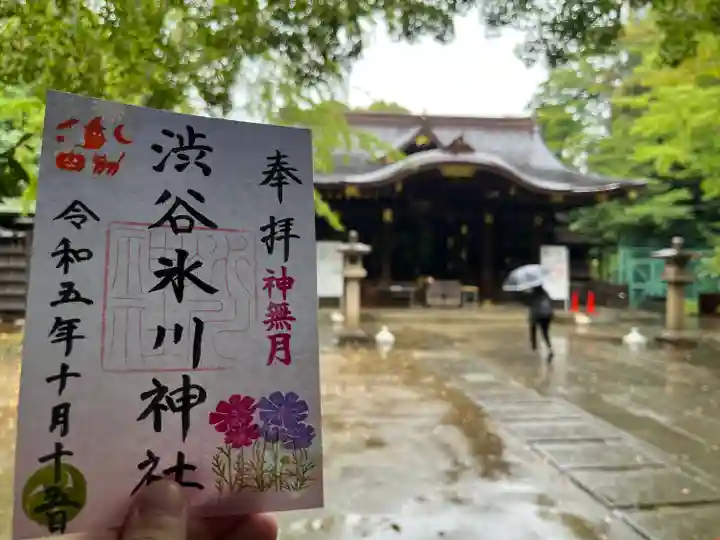 奉拝
神無月
渋谷氷川神社
令和五年十月十五日